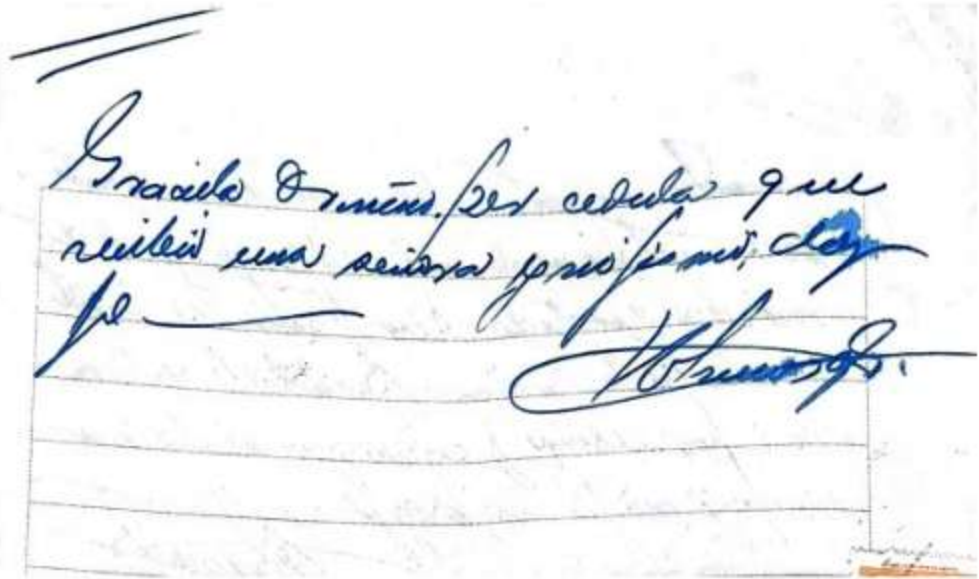 Graciela Ormeño. por cedula que
recibió una señora y no firmó, doy
fe